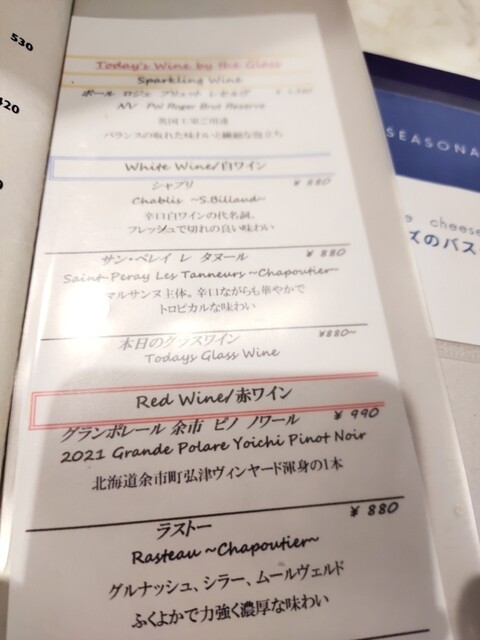 530
420
Today's Wine by the Glass
Sparkling Wine
ポール ロジェ ブリュット レゼルヴ
NV Pol Roger Brut Reserve
英国王室ご用達
バランスの取れた味わいと繊細な泡立ち
White Wine/白ワイン
シャブリ ¥ 880
Chablis ~S.Billaud~
辛口白ワインの代名詞。
フレッシュで切れの良い味わい
サン・ペレイ レ タヌール ¥ 880
Saint-Peray Les Tanneurs ~Chapoutier~
マルサンヌ主体。辛口ながらも華やかで
トロピカルな味わい
本日のグラスワイン ¥880~
Todays Glass Wine
Red Wine/赤ワイン
グランポレール 余市 ピノ ノワール ¥ 990
2021 Grande Polare Yoichi Pinot Noir
北海道余市町弘津ヴィンヤード渾身の1本
ラストー ¥ 880
Rasteau ~Chapoutier~
グルナッシュ、シラー、ムールヴェルド
ふくよかで力強く濃厚な味わい
SEASONA
cheese
ズのバス